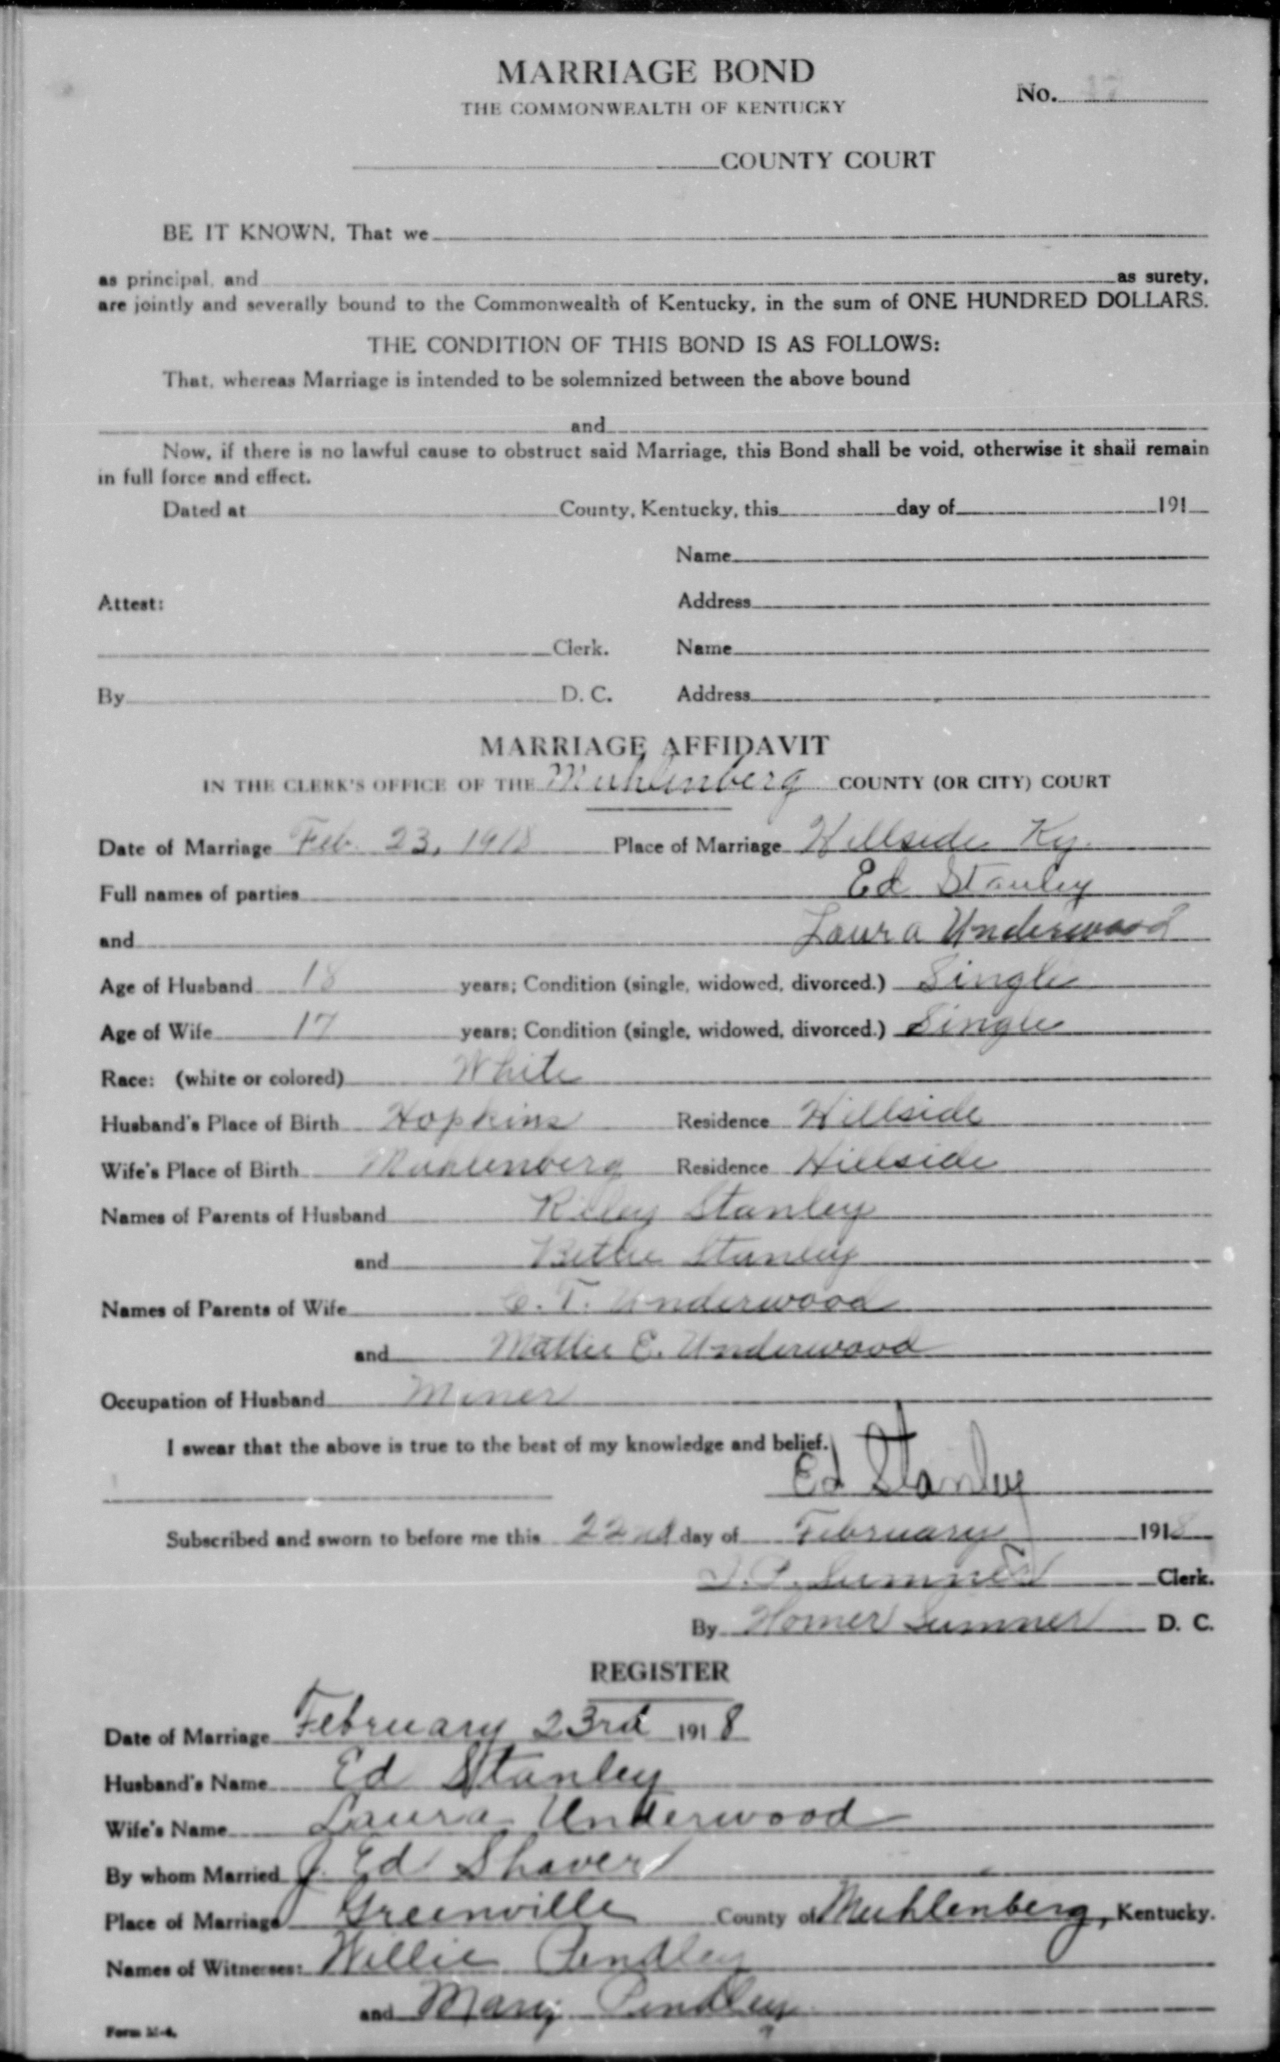 MARRIAGE BOND
No. 17
THE COMMONWEALTH OF KENTUCKY
COUNTY COURT
BE IT KNOWN, That we
as principal, and as surety,
are jointly and severally bound to the Commonwealth of Kentucky, in the sum of ONE HUNDRED DOLLARS.
THE CONDITION OF THIS BOND IS AS FOLLOWS:
That, whereas Marriage is intended to be solemnized between the above bound
and
Now, if there is no lawful cause to obstruct said Marriage, this Bond shall be void, otherwise it shall remain
in full force and effect.
Dated at County, Kentucky, this day of 191
Name
Attest: Address
Clerk. Name
By D. C. Address
MARRIAGE AFFIDAVIT
IN THE CLERK'S OFFICE OF THE Muhlenberg COUNTY (OR CITY) COURT
Date of Marriage Feb. 23, 1918 Place of Marriage Hillside Ky.
Full names of parties Ed Stanley
and Laura Underwood
Age of Husband 18 years; Condition (single, widowed, divorced.) Single
Age of Wife 17 years; Condition (single, widowed, divorced.) Single
Race: (white or colored) White
Husband's Place of Birth Hopkins Residence Hillside
Wife's Place of Birth Muhlenberg Residence Hillside
Names of Parents of Husband Riley Stanley
and Bettie Stanley
Names of Parents of Wife C. T. Underwood
and Mattie E. Underwood
Occupation of Husband Miner
I swear that the above is true to the best of my knowledge and belief.
Ed Stanley
Subscribed and sworn to before me this 22nd day of February 1918
Sumner Clerk.
By Homer Sumner D. C.
REGISTER
Date of Marriage February 23rd 1918
Husband's Name Ed Stanley
Wife's Name Laura Underwood
By whom Married J. Ed Shaver
Place of Marriage Greenville County of Muhlenberg, Kentucky.
Names of Witnesses: Willie Pendley
and Mary Pendley
Form M-4.